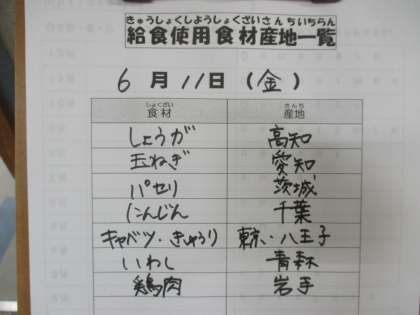 きゅうしょくしようしょくざいさんちいちらん
給食使用食材産地一覧
6月11日(金)
しょくざい さんち
食材 産地
しょうが 高知
玉ねぎ 愛知
パセリ 茨城
にんじん 千葉
キャベツ・きゅうり 東京・八王子
いわし 青森
鶏肉 岩手